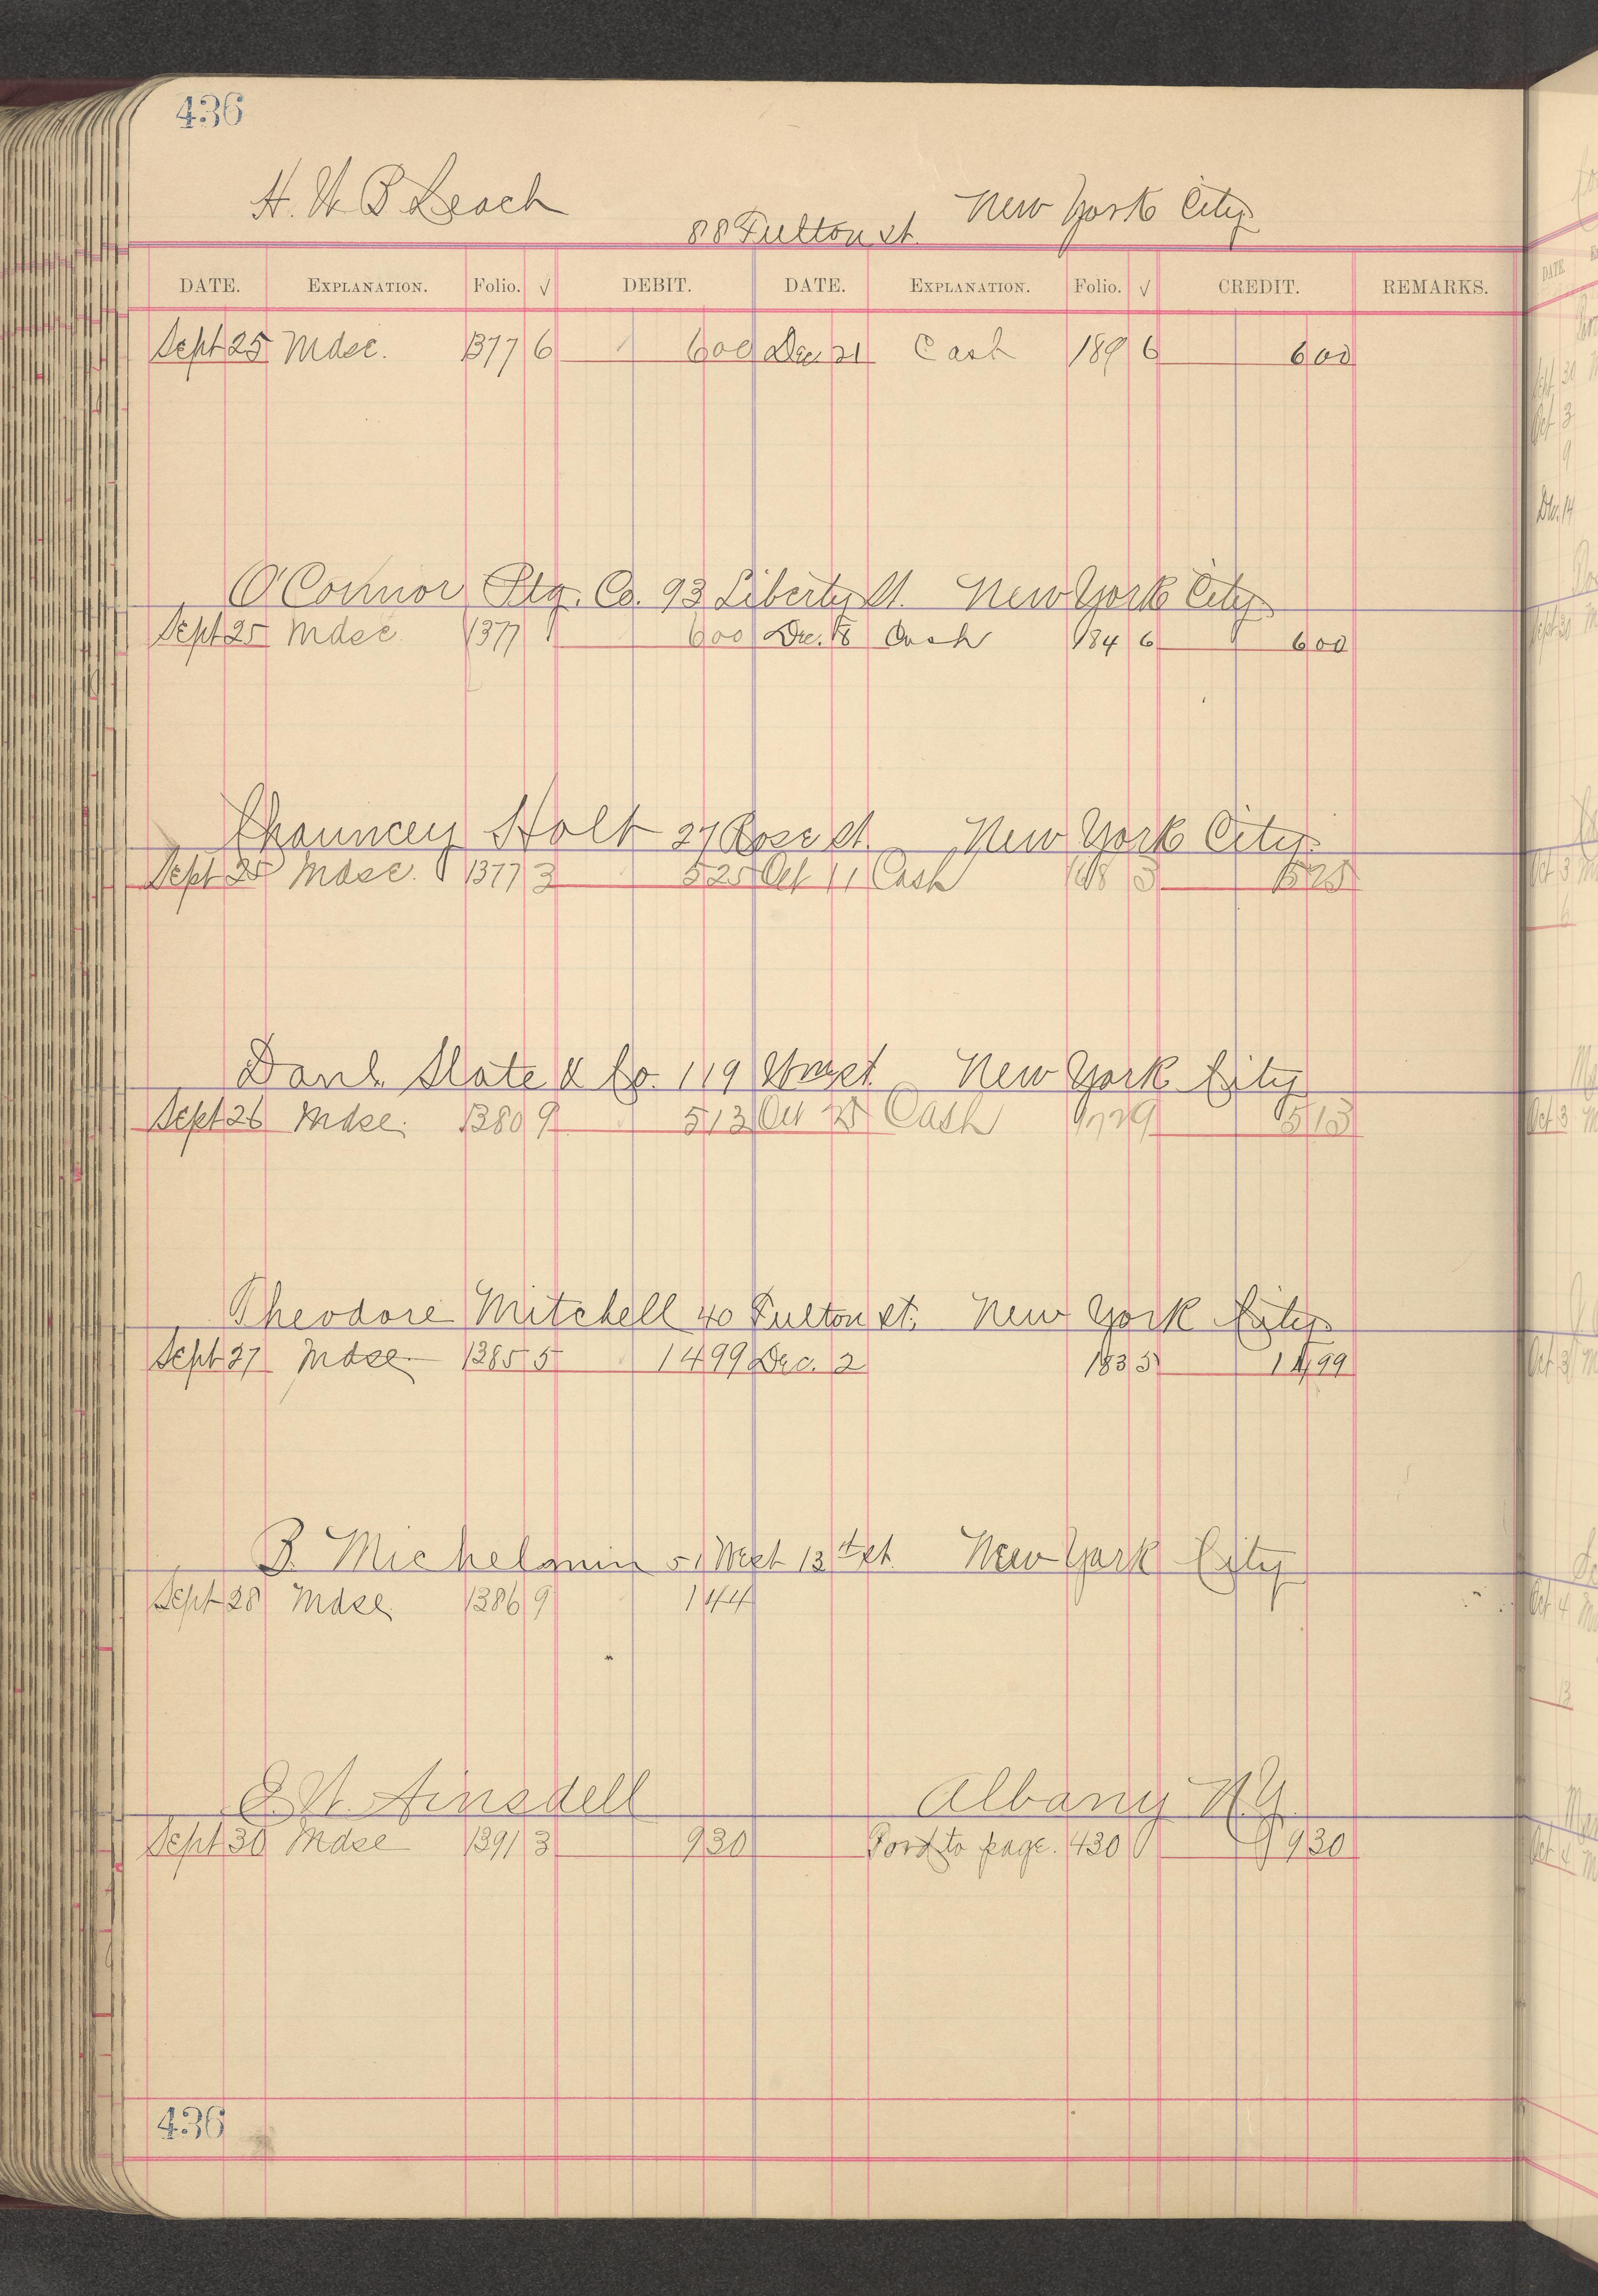 436
H. W. B Leach New York City
88 Fulton st.
DATE. EXPLANATION. Folio. √ DEBIT. DATE. EXPLANATION. Folio. √ CREDIT. REMARKS.
Sept 25 Mdse. 1377 6 600 Dec 21 Cash 189 6 600
O'Connor Ptg. Co. 93 Liberty St. New York City
Sept 25 Mdse 1377 600 Dec. 18 Cash 184 6 600
Chauncey Holt 27 Rose st. New York City
Sept 25 Mdse. 1377 3 525 Oct 11 Cash 168 3 525
Danl. Slate & Co. 119 New York City
Sept 26 Mdse. 1380 9 513 Oct Cash 9 513
Theodore Mitchell 40 Fulton st. New York City
Sept 27 Mdse 1385 5 1499 Dec. 2 183 5 1499
B. Michelmin 51 West 13th st. New York City
Sept 28 Mdse 1386 9 144
E. W. Ainsdell Albany N.Y.
Sept 30 Mdse 1391 3 930 Ford to page. 430 930
436